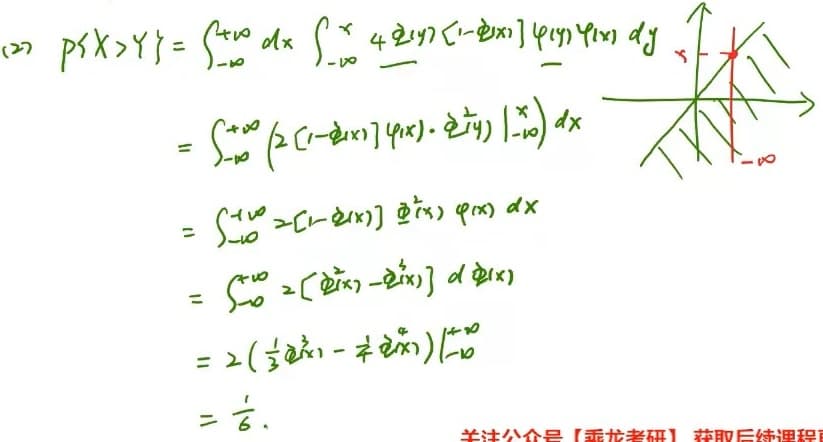 (2) P{X>Y} = ∫_{-∞}^{+∞} dx ∫_{-∞}^{x} 4Φ(y)[1-Φ(x)]φ(y)φ(x) dy
= ∫_{-∞}^{+∞} (2[1-Φ(x)]φ(x)·Φ²(y)|_{-∞}^{x}) dx
= ∫_{-∞}^{+∞} 2[1-Φ(x)]Φ²(x)φ(x) dx
= ∫_{-∞}^{+∞} 2[Φ²(x)-Φ³(x)] dΦ(x)
= 2(1/3 Φ³(x) - 1/4 Φ⁴(x))|_{-∞}^{+∞}
= 1/6.
x
-∞
关注公众号【乘龙考研】 获取后续课程